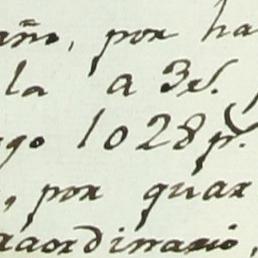 año, por ha
la a 3 s.
go 1028 p.
, por quar
raordinario,